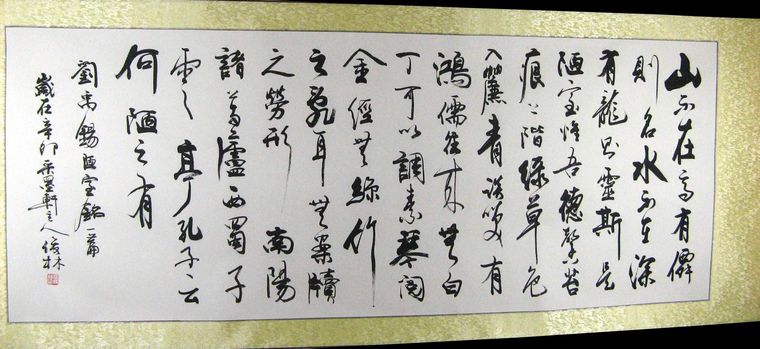 山不在高有僊
則名水不在深
有龍則靈斯是
陋室惟吾德馨苔
痕上階綠草色
入簾青談笑有
鴻儒往來無白
丁可以調素琴閱
金經無絲竹
之亂耳無案牘
之勞形南陽
諸葛廬西蜀子
雲亭孔子云
何陋之有
劉禹錫陋室銘一篇
歲在辛卯采墨軒主人俊林